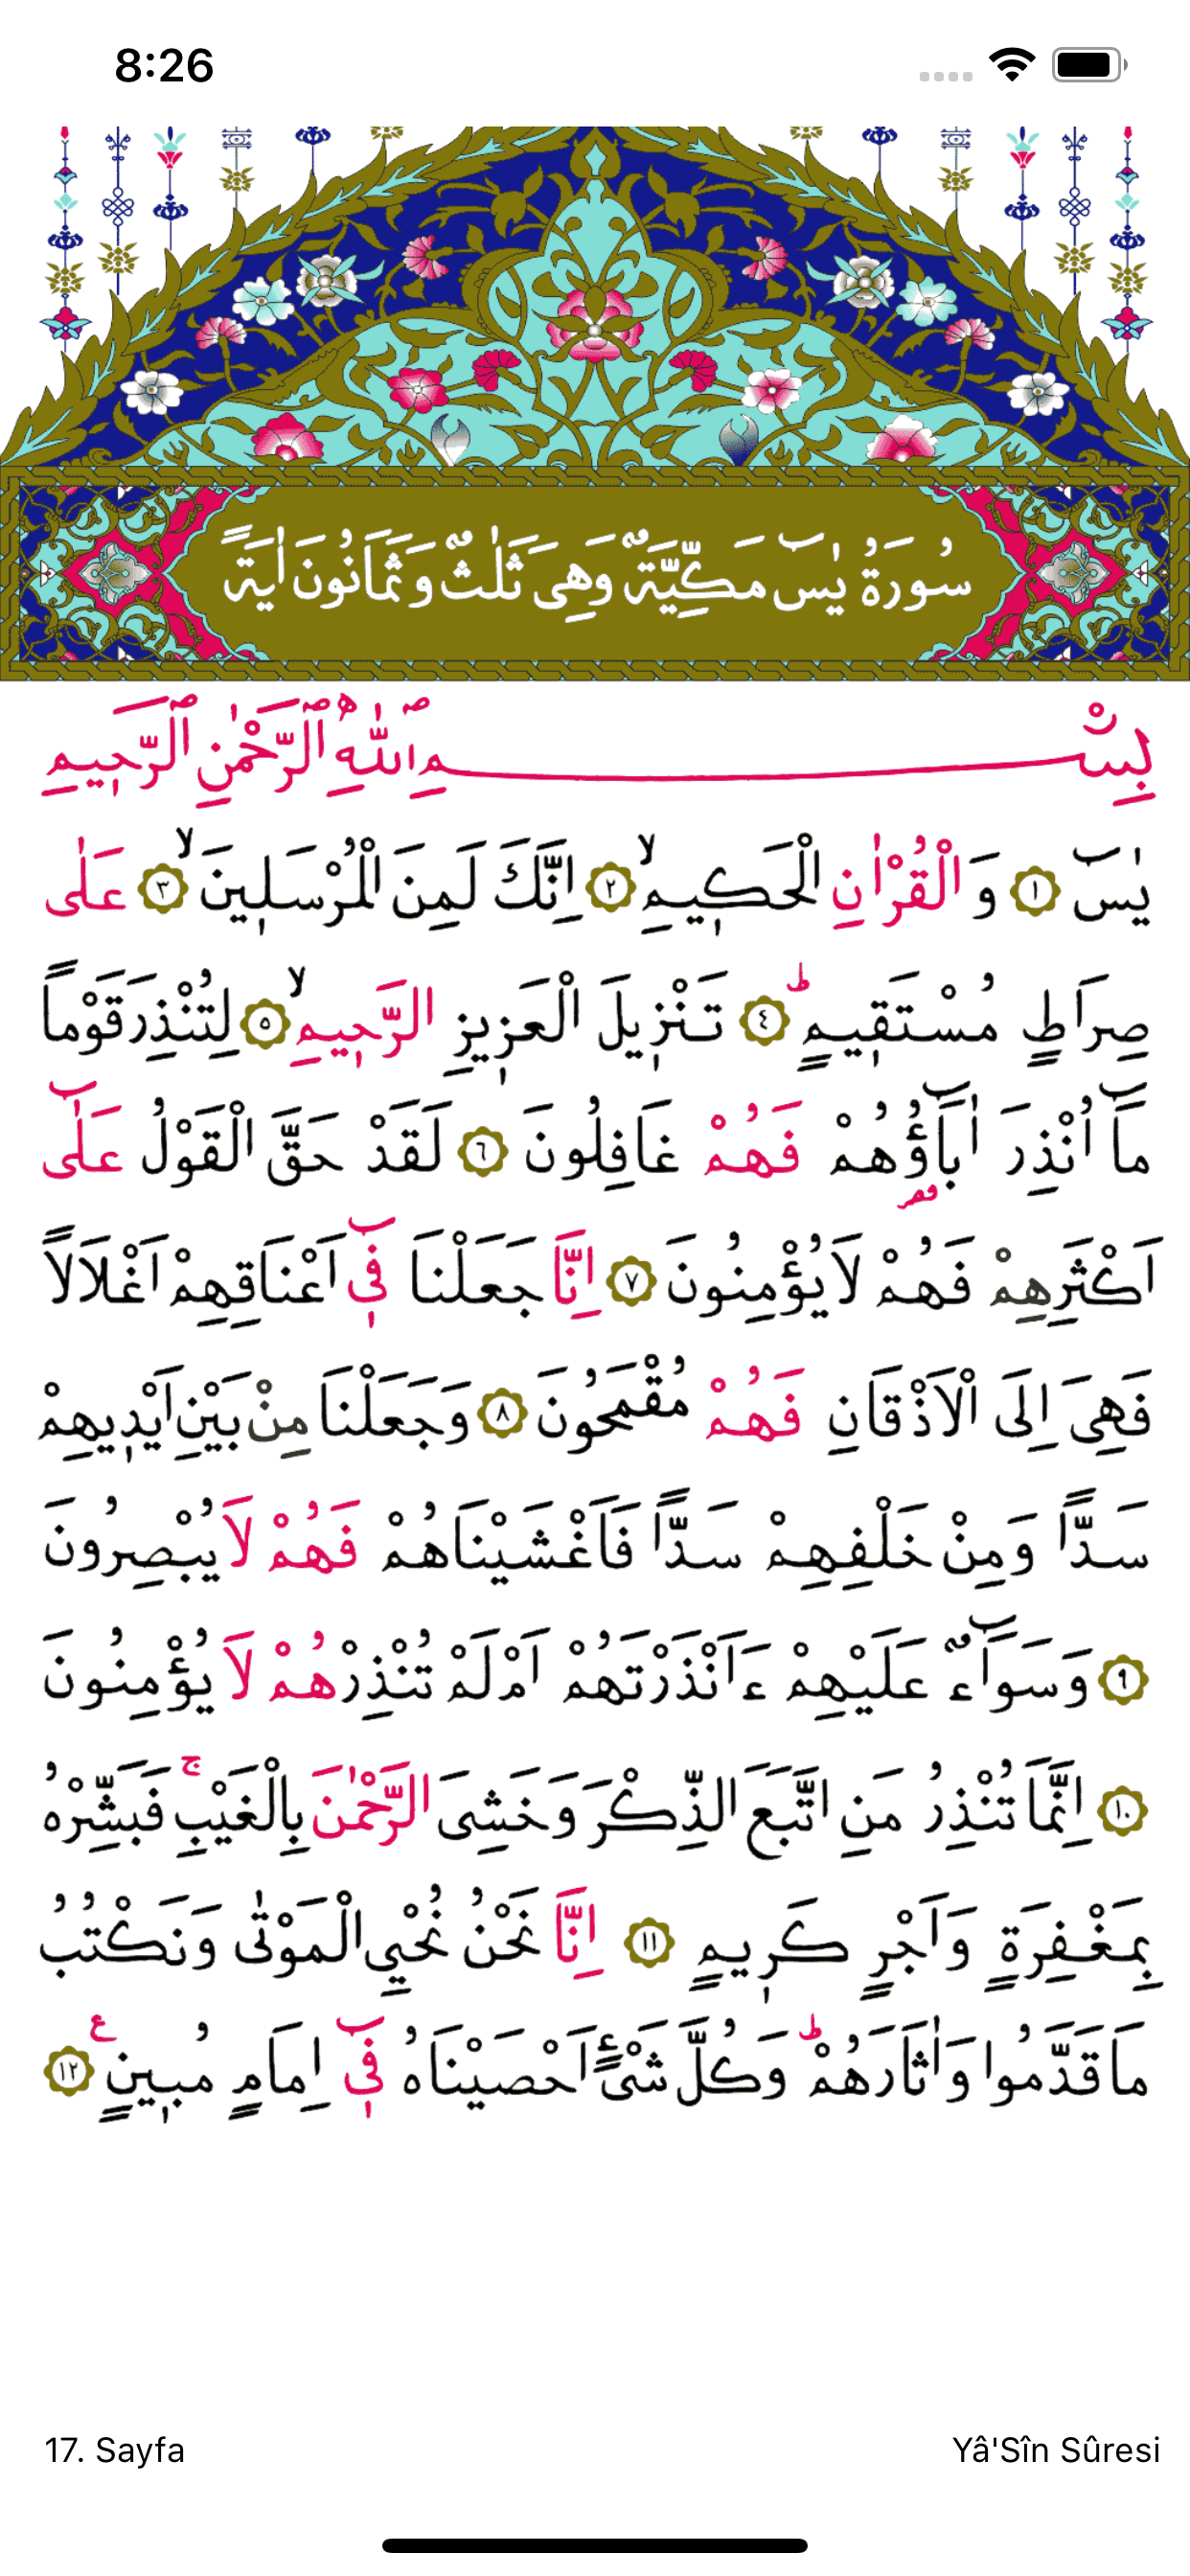 8:26
سُورَةُ يٰسٓ مَكِّيَّةٌ وَهِىَ ثَلٰثٌ وَثَمَانُونَ اٰيَةً
بِسْمِ اللّٰهِ الرَّحْمٰنِ الرَّحٖيمِ
يٰسٓ ﴿١﴾ وَالْقُرْاٰنِ الْحَكٖيمِۙ ﴿٢﴾ اِنَّكَ لَمِنَ الْمُرْسَلٖينَۙ ﴿٣﴾ عَلٰى
صِرَاطٍ مُسْتَقٖيمٍۜ ﴿٤﴾ تَنْزٖيلَ الْعَزٖيزِ الرَّحٖيمِۙ ﴿٥﴾ لِتُنْذِرَ قَوْماً
مَٓا اُنْذِرَ اٰبَٓاؤُ۬هُمْ فَهُمْ غَافِلُونَ ﴿٦﴾ لَقَدْ حَقَّ الْقَوْلُ عَلٰٓى
اَكْثَرِهِمْ فَهُمْ لَا يُؤْمِنُونَ ﴿٧﴾ اِنَّا جَعَلْنَا فٖٓى اَعْنَاقِهِمْ اَغْلَالاً
فَهِىَ اِلَى الْاَذْقَانِ فَهُمْ مُقْمَحُونَ ﴿٨﴾ وَجَعَلْنَا مِنْ بَيْنِ اَيْدٖيهِمْ
سَدًّا وَمِنْ خَلْفِهِمْ سَدًّا فَاَغْشَيْنَاهُمْ فَهُمْ لَا يُبْصِرُونَ
﴿٩﴾ وَسَوَٓاءٌ عَلَيْهِمْ ءَاَنْذَرْتَهُمْ اَمْ لَمْ تُنْذِرْهُمْ لَا يُؤْمِنُونَ
﴿١٠﴾ اِنَّمَا تُنْذِرُ مَنِ اتَّبَعَ الذِّكْرَ وَخَشِىَ الرَّحْمٰنَ بِالْغَيْبِۚ فَبَشِّرْهُ
بِمَغْفِرَةٍ وَاَجْرٍ كَرٖيمٍ ﴿١١﴾ اِنَّا نَحْنُ نُحْيِ الْمَوْتٰى وَنَكْتُبُ
مَا قَدَّمُوا وَاٰثَارَهُمْۜ وَكُلَّ شَىْءٍ اَحْصَيْنَاهُ فٖٓى اِمَامٍ مُبٖينٍ ع ﴿١٢﴾
17. Sayfa Yâ'Sîn Sûresi